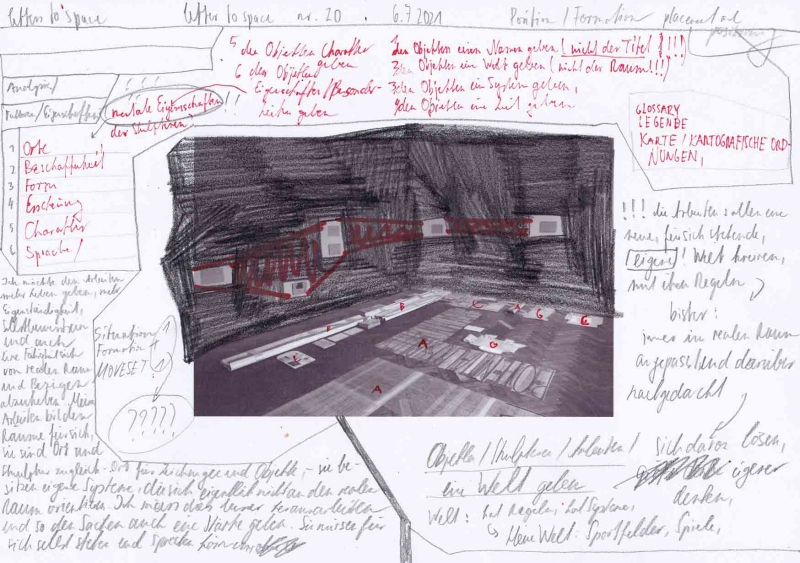 letters to space
letter to space nr. 20 . 6.7.2021
Position / Formation placement and
positioning
5 den Objekten Charakter
geben
6 den Objekten
Eigenschaften/Besonder-
heiten geben
1den Objekten einen Namen geben (nicht der Titel!!!)
den Objekten eine Welt geben (nicht der Raum!!!)
3den Objekten ein System geben,
den Objekten ein geben
GLOSSARY
LEGENDE
KARTE / KARTOGRAFISCHE ORD-
NUNGEN,
Analogien/
/Eigenschaften
mentale Eigenschaften!!
der Skulpturen
1 Orte
2 Beschaffenheit
3 Form
4
5 Charakter
6 Sprache/
!!! die Arbeiten sollen eine
neue, für sich stehende,
(eigene)! Welt kreieren,
mit ihren Regeln
bisher:
immer im realen Raum
angepasst und darüber
nachgedacht
Ich möchte den Arbeiten
mehr geben, mehr
Eigenständigkeit,
Selbstbewusstsein
und auch
eine Fähigkeit sich
von realen Raum
und Bezügen
abzuheben. Meine
Arbeiten bilden
Räume für sich,
sie sind Ort und
Skulptur zugleich - Ort für Zeichnungen und Objekte, - sie be-
sitzen eigene Systeme, die sich eigentlich nicht an den realen
Raum orientieren. Ich muss das besser herausarbeiten
und so den Sachen auch eine Stärke geben. Sie müssen für
sich selbst stehen und sprechen können
Situation
Formation
MOVESET?
?????
E
F
B
C
A
G
G
G
A
A
Objekten / Skulpturen / Arbeiten /
eine Welt geben
Welt: hat Regeln, hat Systeme,
Meine Welt: Sportfelder, Spiele,
sich davon lösen,
eigener
denken,